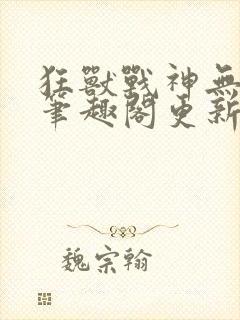 狂獸戰神無
筆趣閣更新
魏宗翰